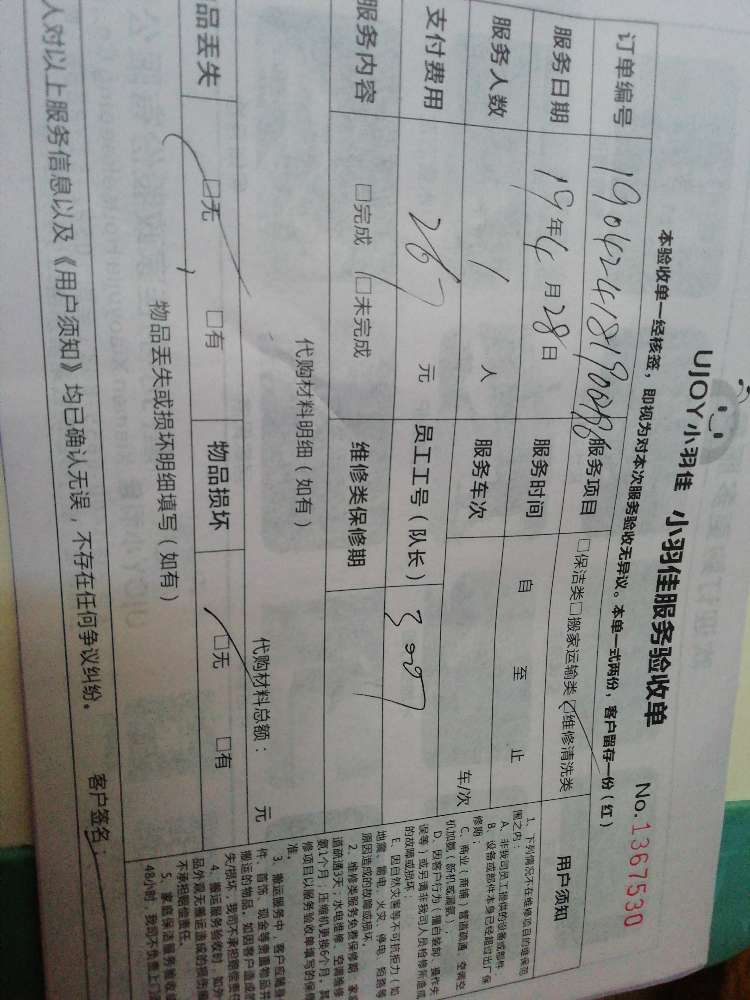 UJOY小羽佳 小羽佳服务验收单 No.1367530
本验收单一经核签，即视为对本次服务验收无异议。本单一式两份，客户留存一份（红）
订单编号 服务项目 □保洁类□搬家运输类☑维修清洗类
服务日期 19年4月28日 服务时间 自 至 止
服务人数 1 人 服务车次 车/次
支付费用 267 元 员工工号（队长） 3007
服务内容 □完成 □未完成 维修类保修期
代购材料明细（如有） 代购材料总额： 元
品丢失 ☑无 □有 物品损坏 ☑无 □有
物品丢失或损坏明细填写（如有）
人对以上服务信息以及《用户须知》均已确认无误，不存在任何争议纠纷。 客户签名
用户须知
1、下列情况不在维修项目的维保范
围之内：
A、非我司员工提供的设备或部件
B、设备或部件本身已经超过出厂保
修期；
C、商业（商铺）管道疏通，空调空
机加氨（新机或漏氨）；
D、因客户行为（擅自装卸、操作失
误等）或另请非我司人员检修所造成
的故障或损坏；
E、因自然灾害等不可抗拒力（如
地震、雷电、火灾、停电、短路等
原因造成的故障或损坏。
2、维修类服务免费保修期：家
道疏通3天；水电维修、空调维修
氨1个月；压缩机更换6个月，其
修项目以服务验收单填写的保修
准。
3、搬运服务中，客户应随身
件、首饰、现金等贵重物品并
搬运的物品，如因客户造成的
失/损坏，我司不承担赔偿责任
4、搬运服务验收时，如外
品外观无搬运造成的损伤痕
不承担赔偿责任
5、家庭保洁服务验收
48小时，我司不负责上门